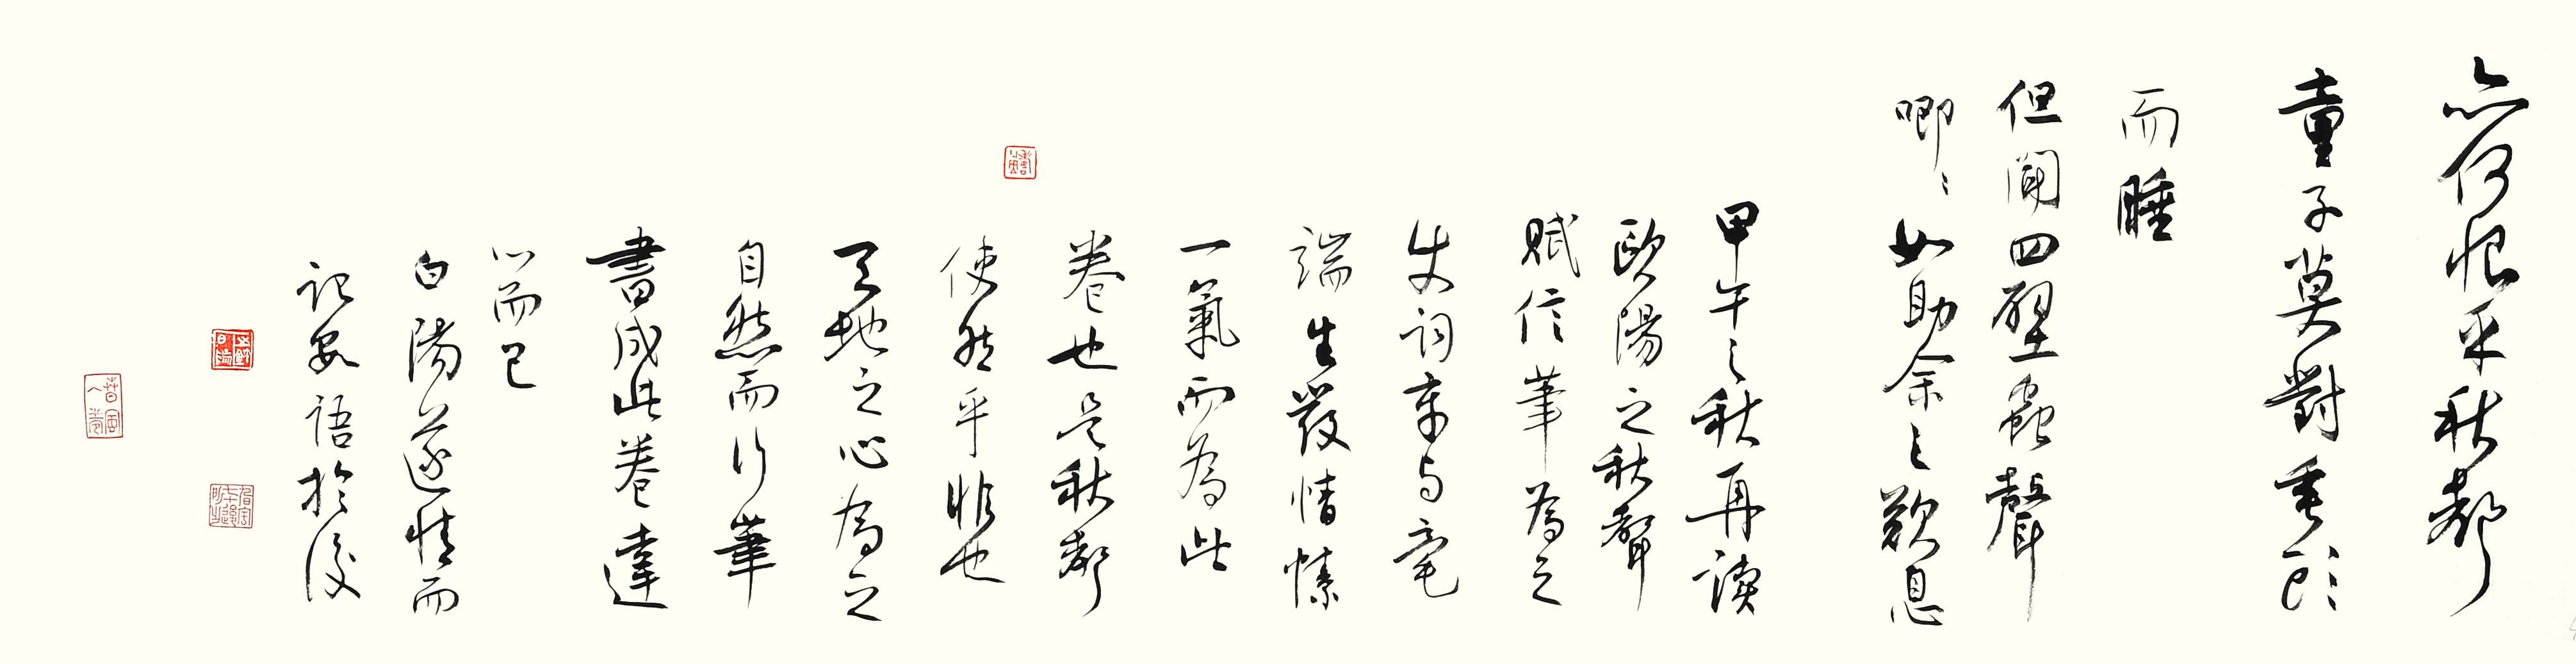 亦何恨乎秋聲
童子莫對垂頭
而睡
但聞四壁蟲聲
唧〻如助余之歎息
甲午之秋再讀
歐陽之秋聲
賦信筆為之
文詞章与毫
端生發情愫
一氣而為此
卷也是秋聲
使然乎非也
天地之心為之
自然而行筆
書成此卷達
心而已
白陽遂情而
記數語於後